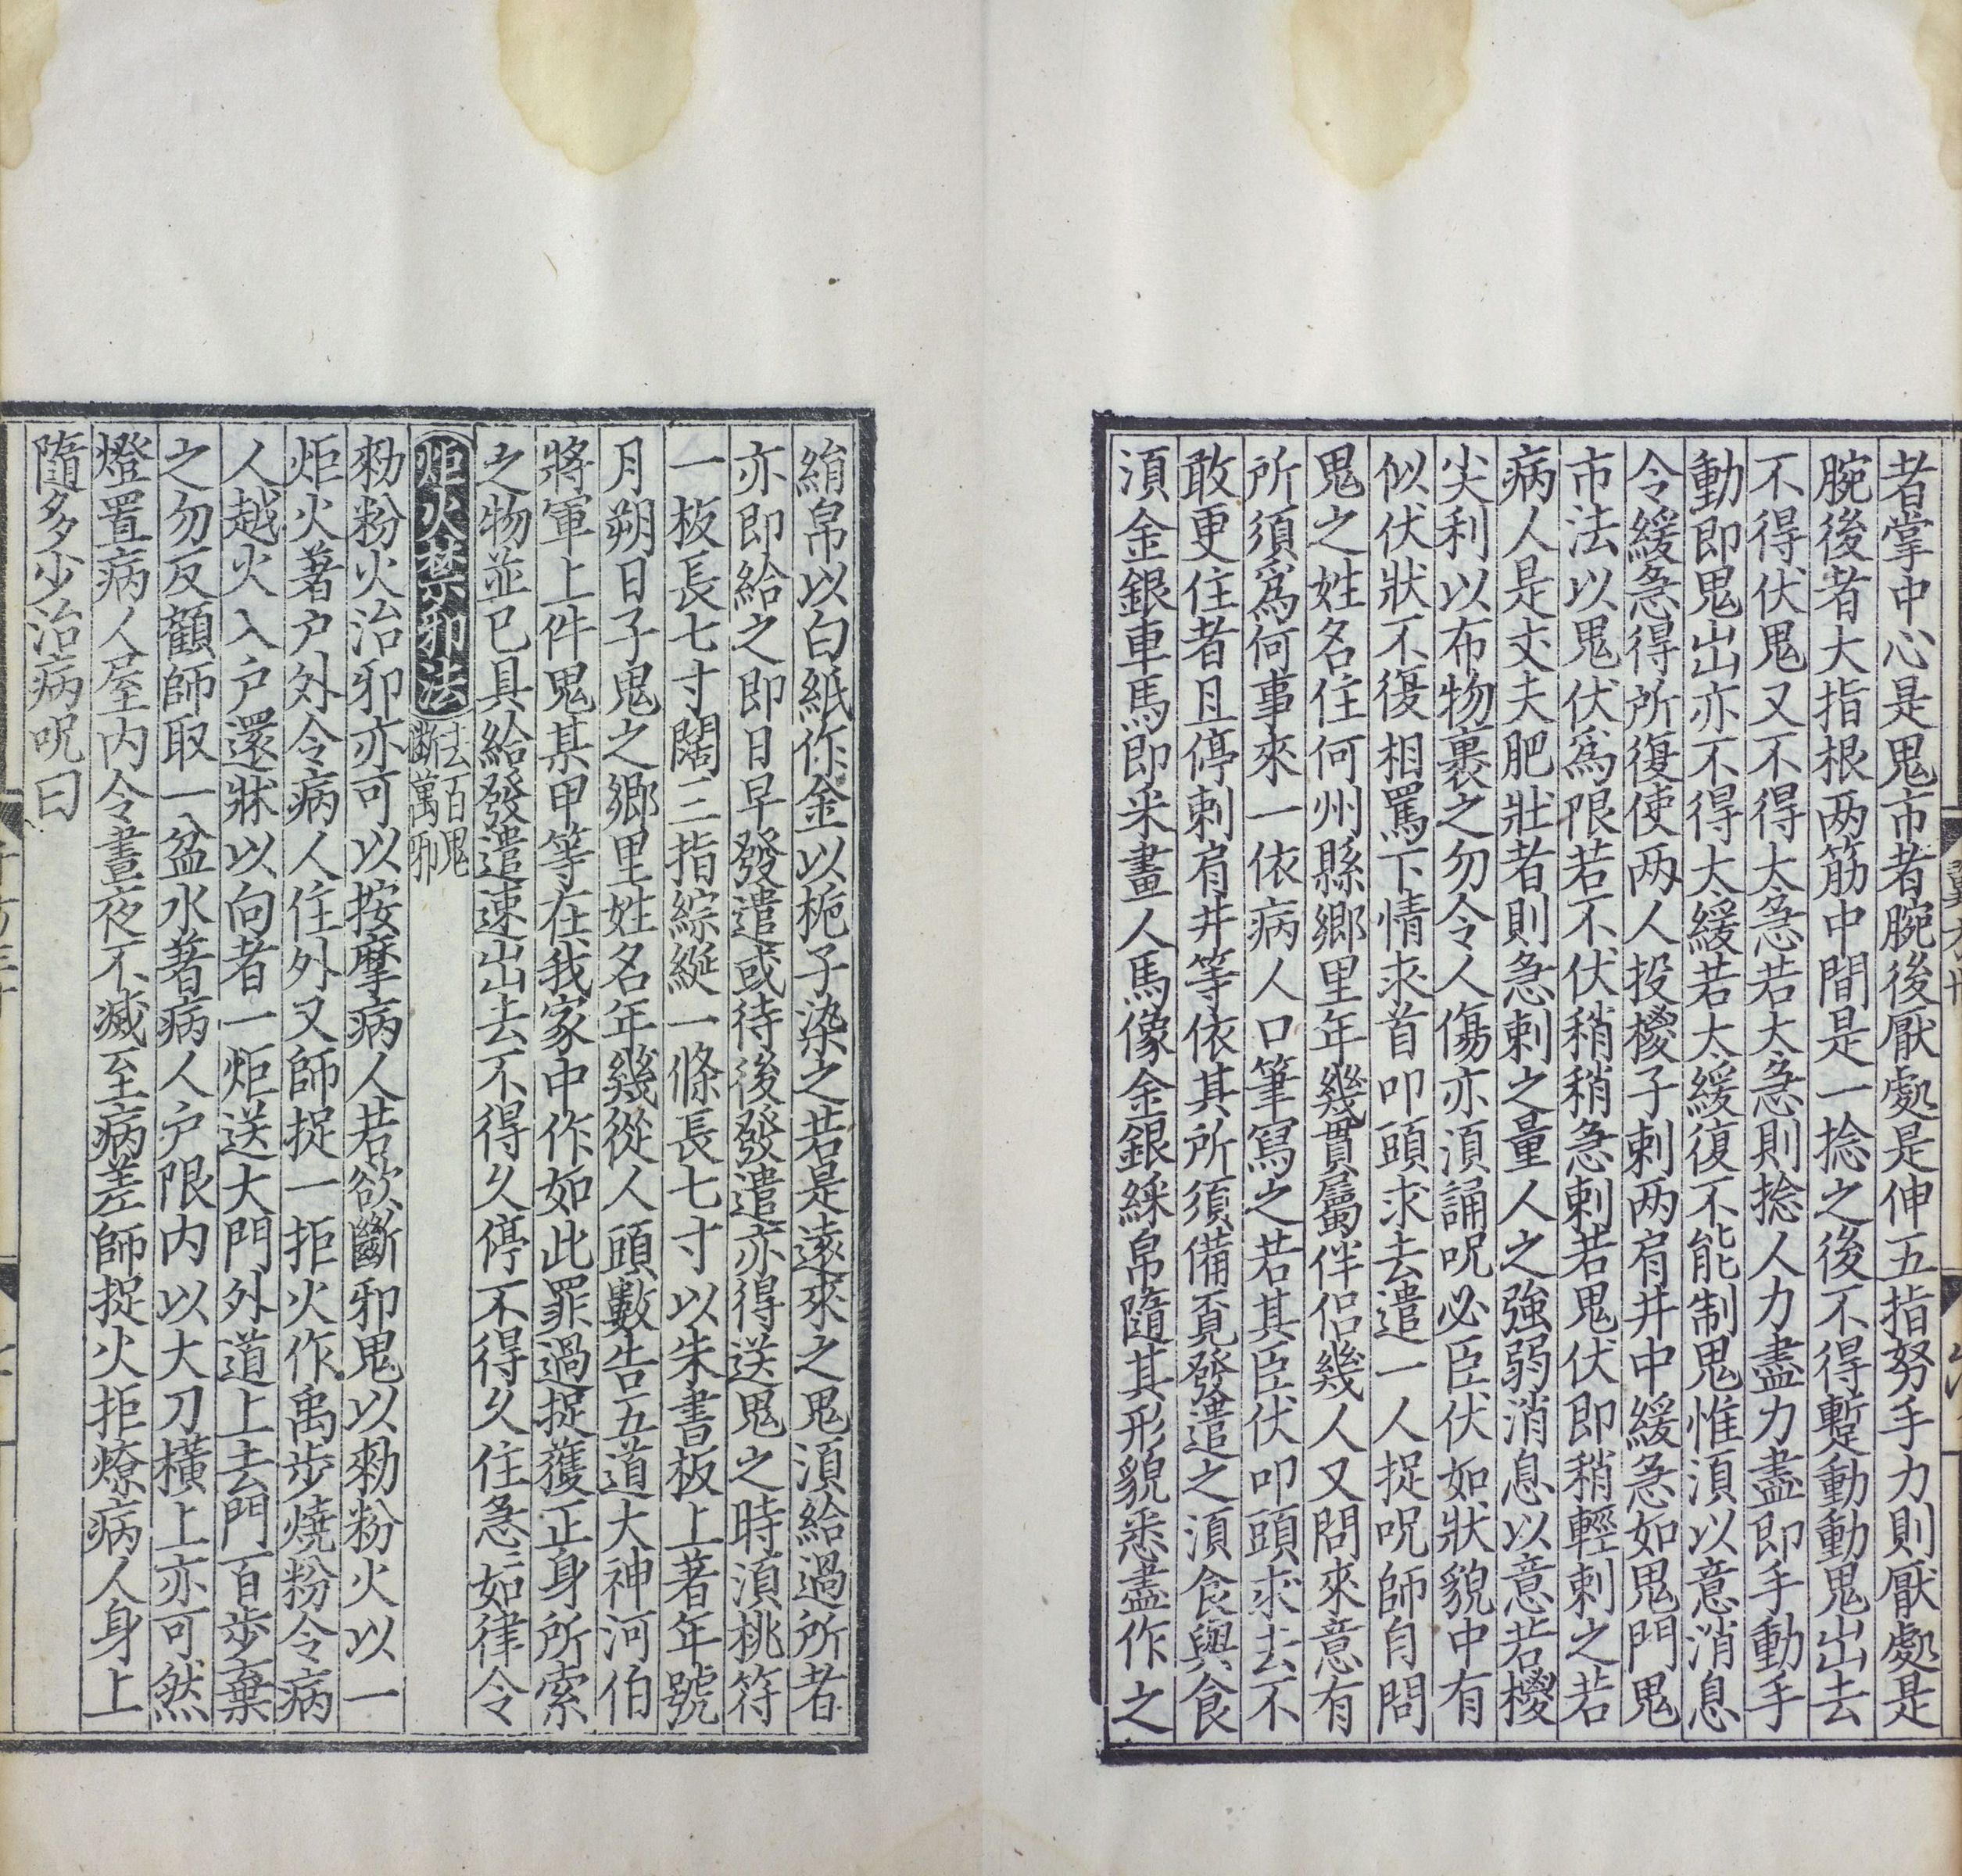 者掌中心是鬼市者腕後厭處是伸五指努手力則厭處是
腕後者大指根两筋中間是一捻之後不得蹔動動鬼出去
不得伏鬼又不得大急若大急則捻人力盡力盡即手動手
動即鬼出亦不得大緩若大緩復不能制鬼惟湏以意消息
令緩急得所復使两人投㮨子刺两肩井中緩急如鬼門鬼
市法以鬼伏爲限若不伏稍稍急刺若鬼伏即稍輕刺之若
病人是丈夫肥壯者則急刺之量人之強弱消息以意若㮨
尖利以布物裹之勿令人傷亦湏誦呪必臣伏如狀貌中有
似伏狀不復相罵下情求首叩頭求去遣一人捉呪師自問
鬼之姓名住何州縣鄉里年幾貫屬伴侣幾人又問來意有
所須爲何事來一依病人口筆寫之若其臣伏叩頭求去不
敢更住者且停刺肩井等依其所須備覔發遣之湏食與食
湏金銀車馬即采畫人馬像金銀綵帛隨其形貌悉盡作之
絹帛以白紙作金以栀子染之若是遠來之鬼湏給過所者
亦即給之即日早發遣或待後發遣亦得送鬼之時湏桃符
一板長七寸闊三指綜綖一條長七寸以朱書板上著年號
月朔日子鬼之鄉里姓名年幾從人頭數告五道大神河伯
將軍上件鬼某甲等在我家中作如此罪過捉獲正身所索
之物並已具給發遣速出去不得乆停不得乆住急急如律令
炬火禁邪法 去百鬼斷萬邪
勑粉火治邪亦可以按摩病人若欲斷邪鬼以勑粉火以一
炬火著户外令病人住外又師捉一拒火作禹步燒粉令病
人越火入户還牀以向者一炬送大門外道上去門百步棄
之勿反顧師取一盆水著病人户限内以大刀橫上亦可然
燈置病人屋内令晝夜不滅至病差師捉火拒燎病人身上
隨多少治病呪曰